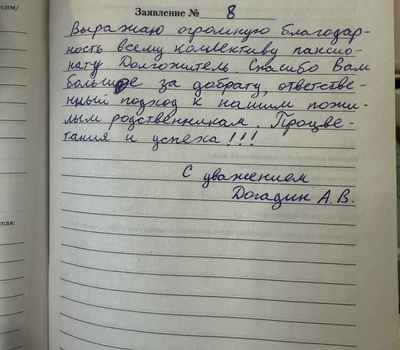 Заявление № 8
Выражаю огромную благодар-
ность всему коллективу пансио-
нату Долгожитель. Спасибо Вам
большое за доброту, ответстве-
нный подход к нашим пожи-
лым родственникам. Процве-
тания и успеха!!!
С уважением
Догадин А.В.